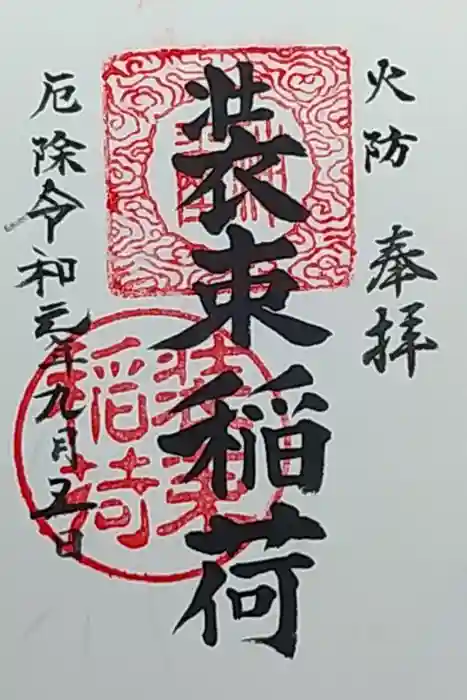 火防 奉拝
装束稲荷
厄除 令和元年九月五日
装束
稲荷